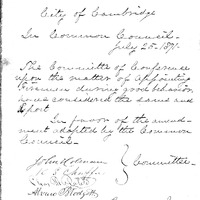 City of Cambridge
In Common Council.
July 25, 1871.
The Committee of Conference
upon the matter of appointing
Firemen during good behavior
have considered the same and
Report
In favor of the amend-
ment adopted by the Common
Council.
Committee